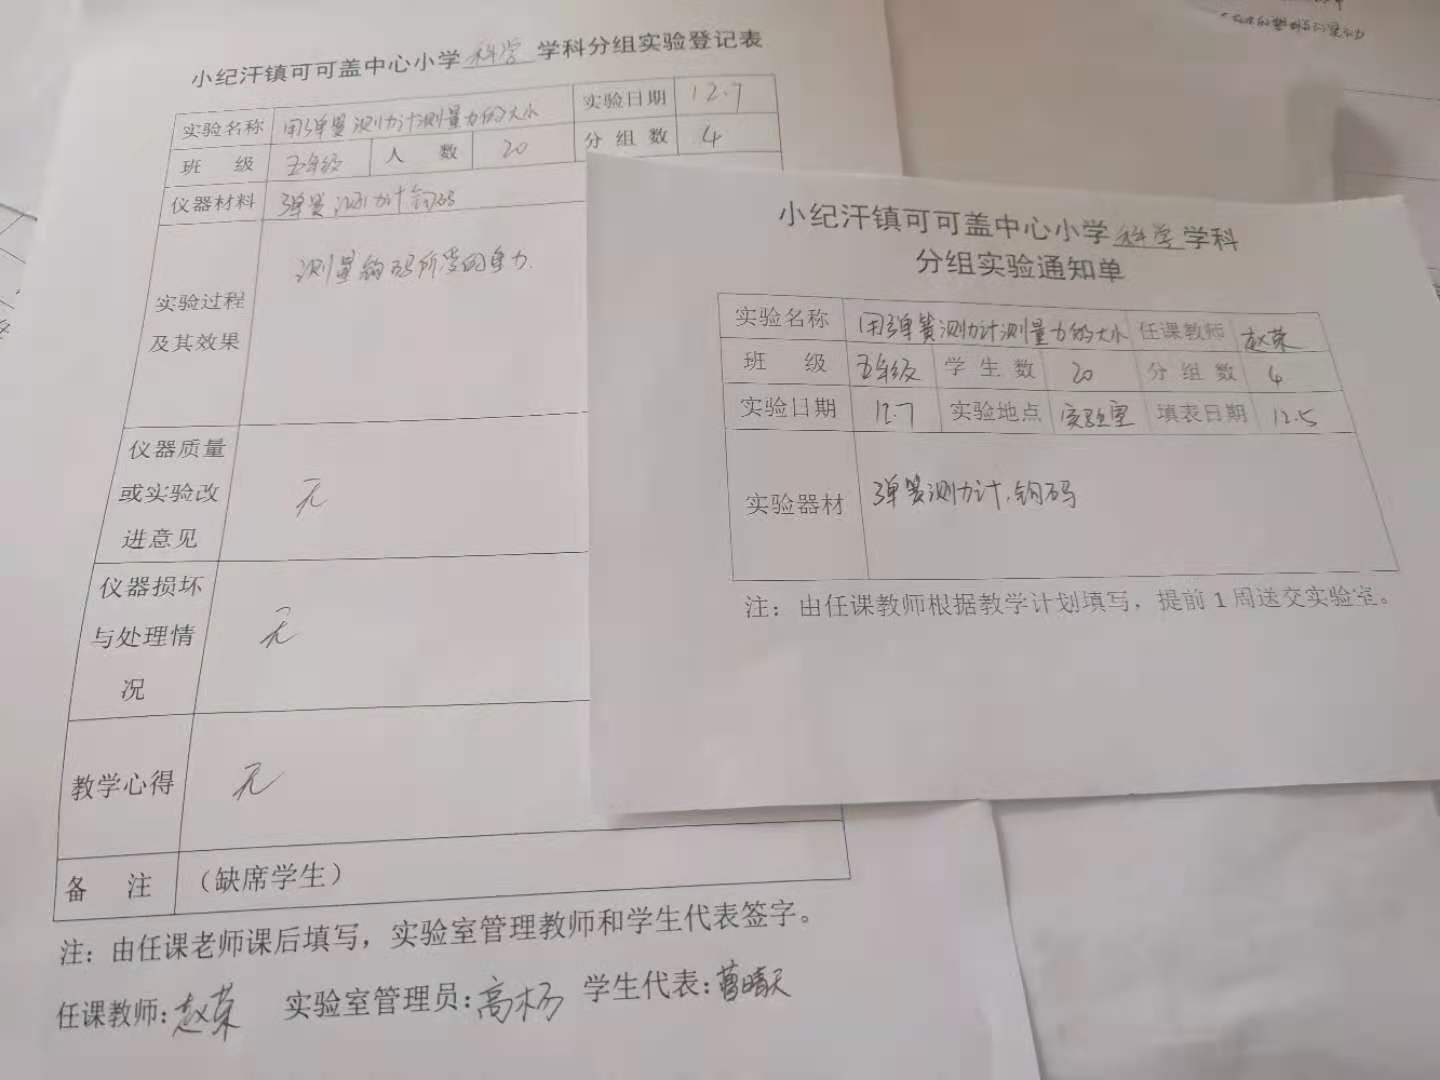 小纪汗镇可可盖中心小学科学学科分组实验登记表
实验名称 用弹簧测力计测量力的大小 实验日期 12.7
班 级 五年级 人 数 20 分 组 数 4
仪器材料 弹簧测力计 钩码
实验过程
及其效果
测量钩码所受的重力.
仪器质量
或实验改
进意见
无
仪器损坏
与处理情
况
无
教学心得 无
备 注 （缺席学生）
注：由任课老师课后填写，实验室管理教师和学生代表签字。
任课教师:赵荣 实验室管理员:高杨 学生代表:曹晴天
小纪汗镇可可盖中心小学科学学科
分组实验通知单
实验名称 用弹簧测力计测量力的大小 任课教师 赵荣
班 级 五年级 学 生 数 20 分 组 数 4
实验日期 12.7 实验地点 实验室 填表日期 12.5
实验器材 弹簧测力计、钩码
注：由任课教师根据教学计划填写，提前1周送交实验室。